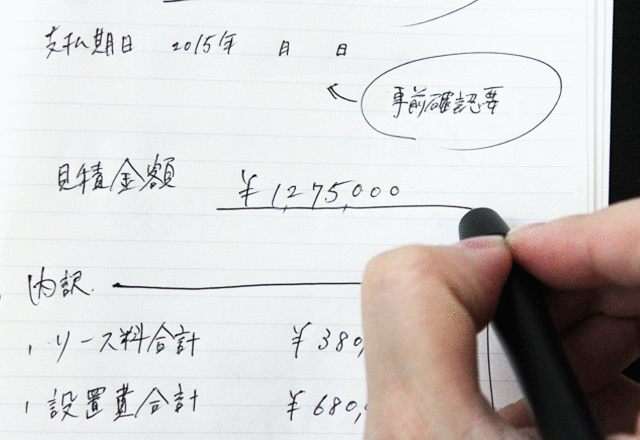 支払期日 2015年 月 日
事前確認要
見積金額 ¥1,275,000
内訳
リース料合計 ¥380,
設置費合計 ¥680,